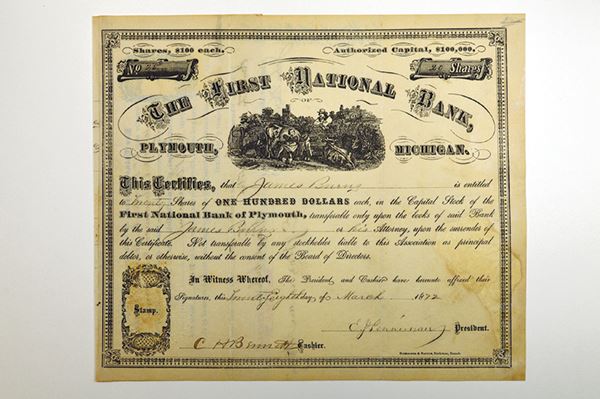 Shares, $100 each. Authorized Capital, $100,000.
No 22 20 Shares
THE FIRST NATIONAL BANK,
OF
PLYMOUTH, MICHIGAN.
This Certifies, that James Burns is entitled
to Twenty Shares of ONE HUNDRED DOLLARS each, in the Capital Stock of the
First National Bank of Plymouth, transferable only upon the books of said Bank
by the said James Burns or his Attorney, upon the surrender of
this Certificate. Not transferable by any stockholder liable to this Association as principal
debtor, or otherwise, without the consent of the Board of Directors.
In Witness Whereof, The President and Cashier have hereunto affixed their
Signatures, this Twenty Eighth day of March 1872
Stamp.
President.
C H Bennett Cashier.